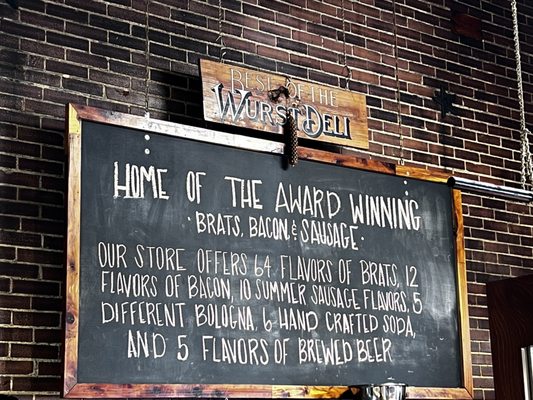 BEST OF THE
WURST DELI
HOME OF THE AWARD WINNING
BRATS, BACON, & SAUSAGE
OUR STORE OFFERS 64 FLAVORS OF BRATS, 12
FLAVORS OF BACON, 10 SUMMER SAUSAGE FLAVORS, 5
DIFFERENT BOLOGNA, 6 HAND CRAFTED SODA,
AND 5 FLAVORS OF BREWED BEER